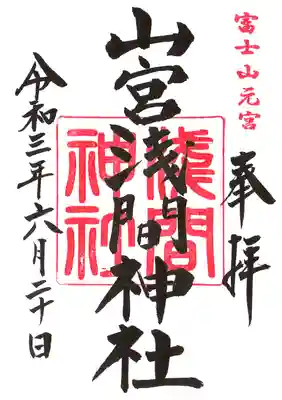 富士山元宮
奉拝
山宮浅間神社
淺間神社
令和三年六月二十日